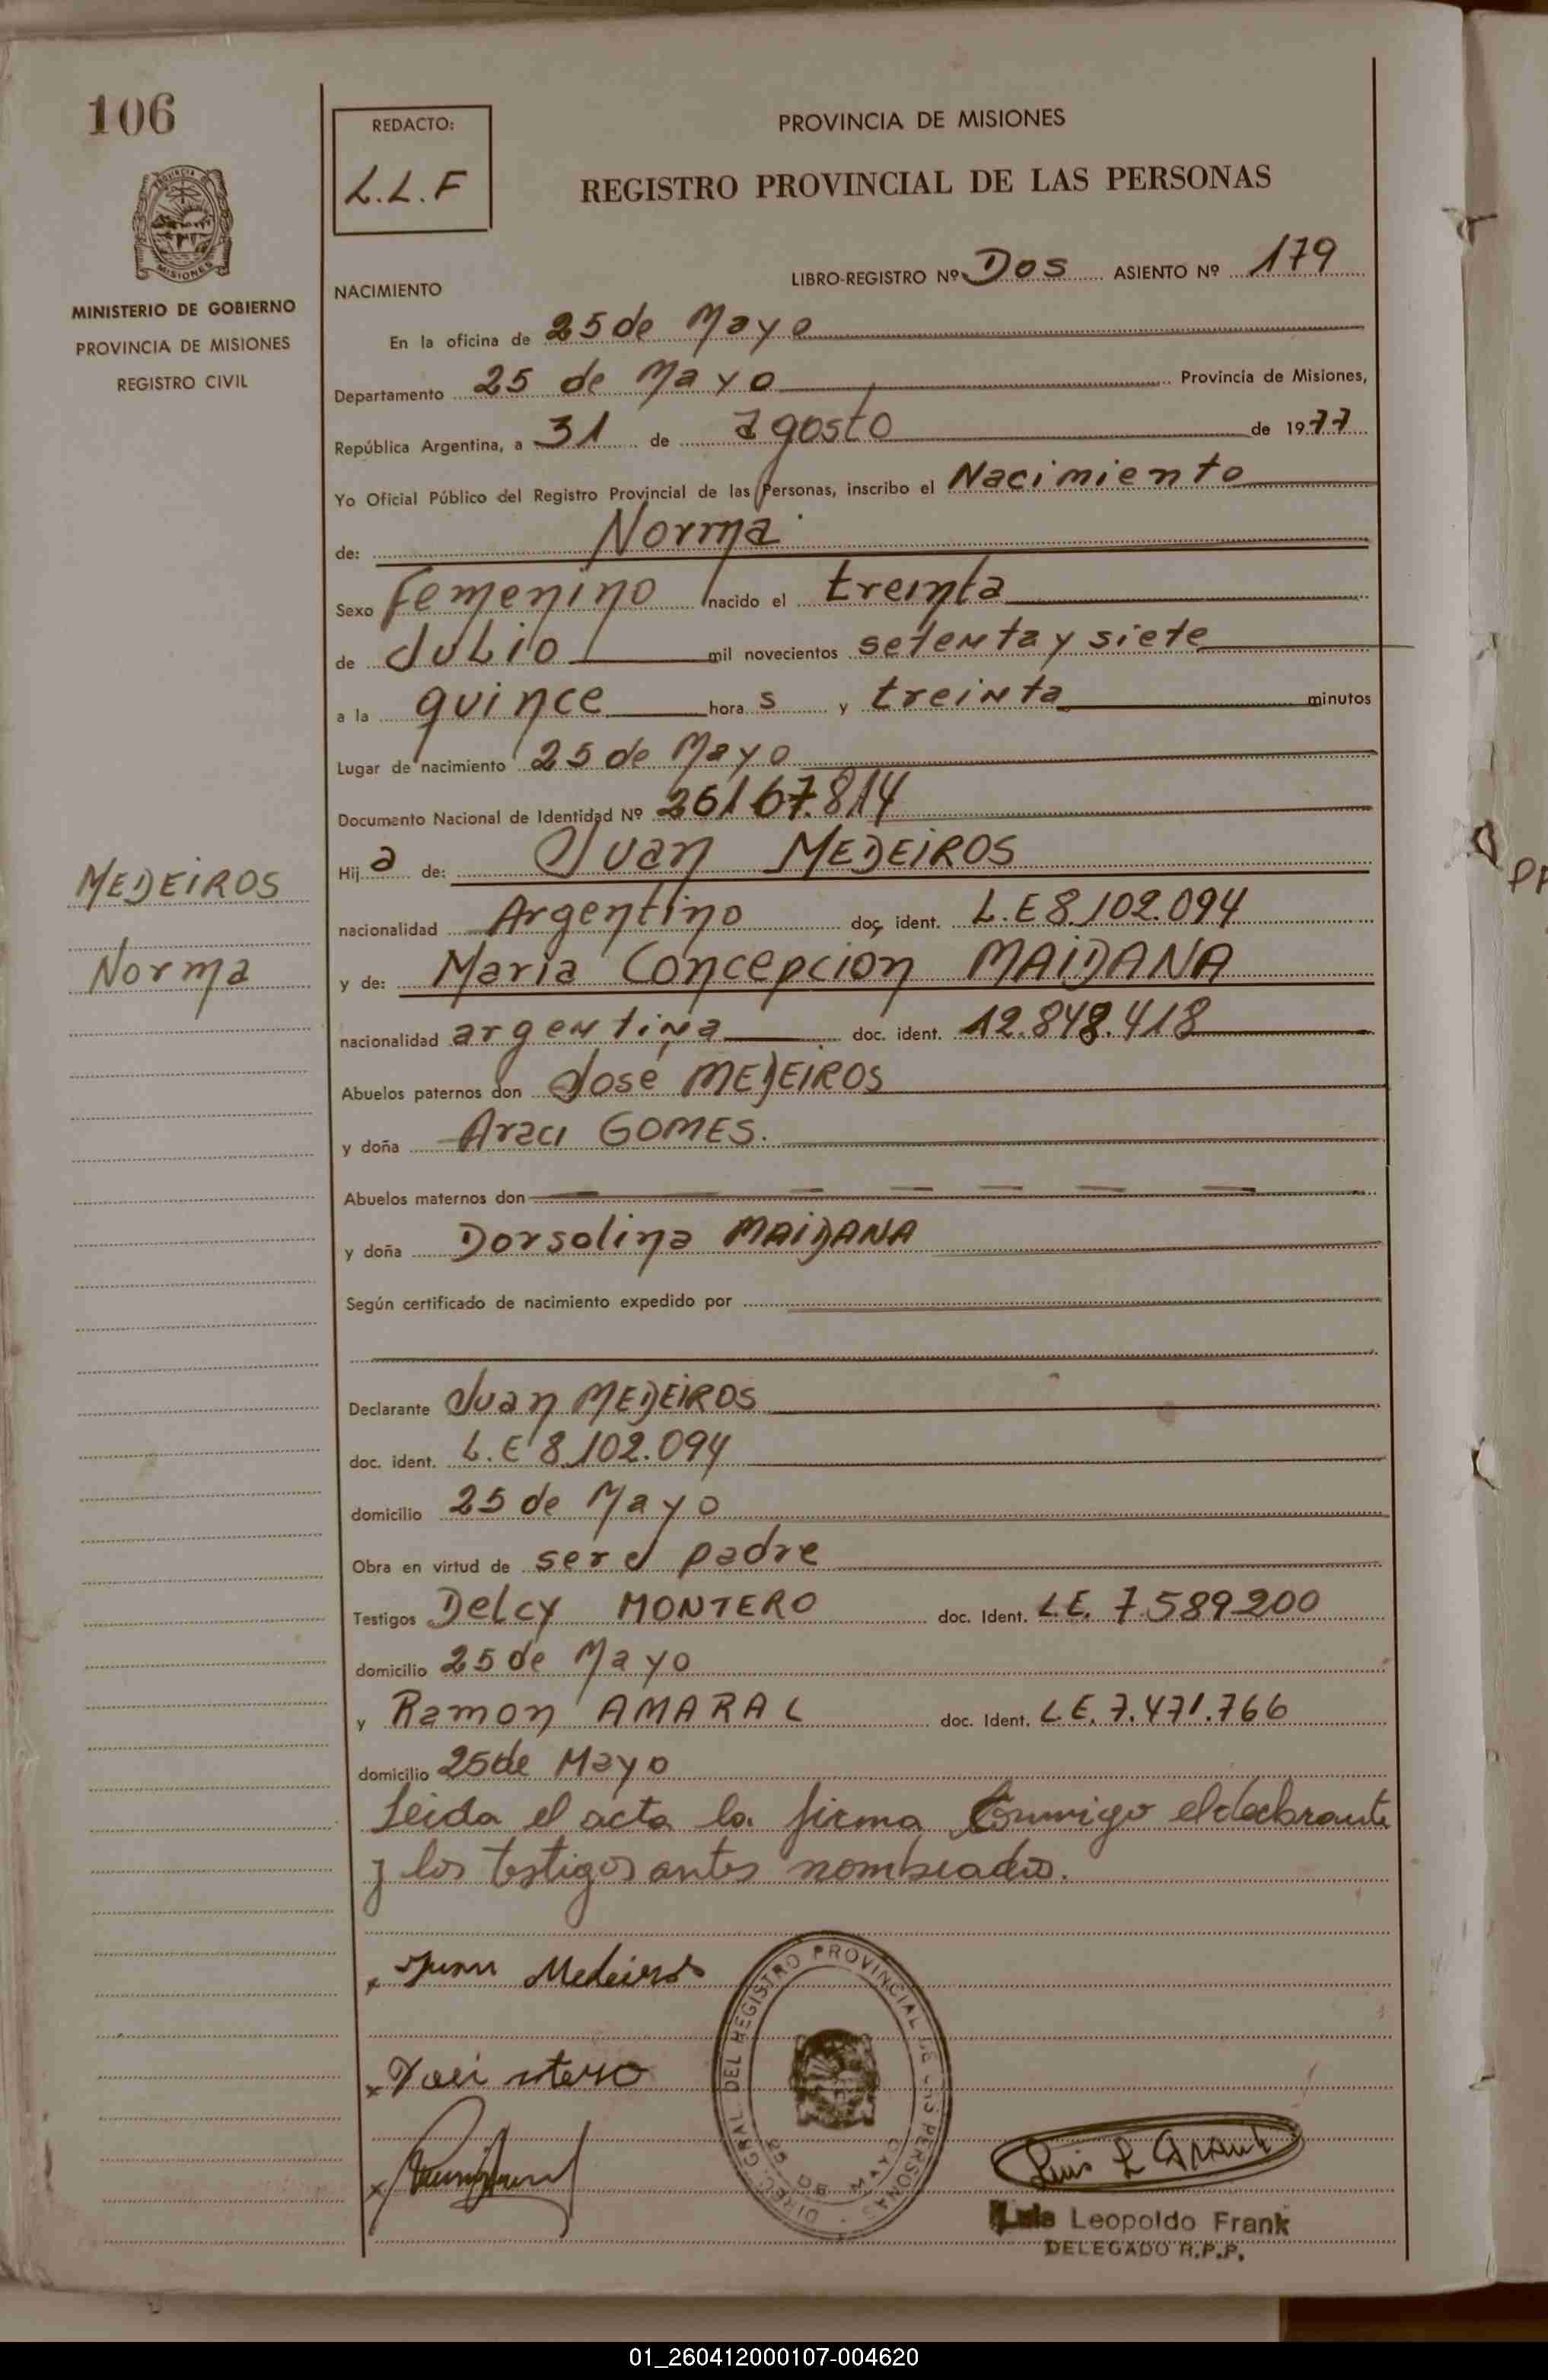 106
REDACTO:
L.L.F
PROVINCIA DE MISIONES
REGISTRO PROVINCIAL DE LAS PERSONAS
PROVINCIA DE MISIONES
MINISTERIO DE GOBIERNO
PROVINCIA DE MISIONES
REGISTRO CIVIL
LIBRO-REGISTRO Nº Dos ASIENTO Nº 179
NACIMIENTO
En la oficina de 25 de Mayo
Departamento 25 de Mayo Provincia de Misiones,
República Argentina, a 31 de agosto de 1977
Yo Oficial Público del Registro Provincial de las Personas, inscribo el Nacimiento
de: Norma
Sexo Femenino nacido el treinta
de Julio mil novecientos setenta y siete
a la quince hora s y treinta minutos
Lugar de nacimiento 25 de Mayo
Documento Nacional de Identidad Nº 26167.814
Hij a de: Juan MEDEIROS
MEDEIROS
Norma
nacionalidad Argentino doc. ident. L.E 8.102.094
y de: Maria Concepcion MAIDANA
nacionalidad argentina doc. ident. 12.848.418
Abuelos paternos don José MEDEIROS
y doña Araci GOMES.
Abuelos maternos don — — — — — —
y doña Dorsolina MAIDANA
Según certificado de nacimiento expedido por
Declarante Juan MEDEIROS
doc. ident. L.E 8.102.094
domicilio 25 de Mayo
Obra en virtud de ser el padre
Testigos Delcy MONTERO doc. Ident. L.E. 7.589200
domicilio 25 de Mayo
y Ramon AMARAL doc. Ident. L.E. 7.471.766
domicilio 25 de Mayo
Leida el acta la firma Conmigo el declarante
y los testigos antes nombrados.
x Juan Medeiros
DIREC. GRAL. DEL REGISTRO PROVINCIAL DE LAS PERSONAS
25 DE MAYO
Luis L Frank
Luis Leopoldo Frank
DELEGADO R.P.P.
01_260412000107-004620